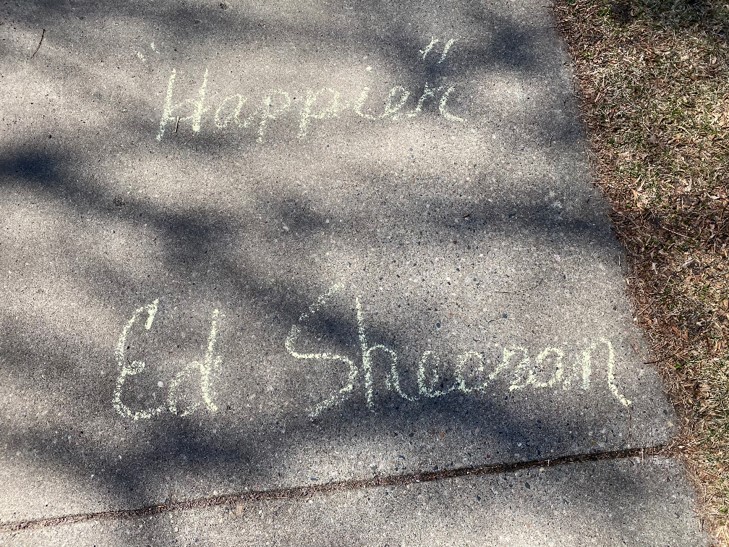 "Happier"
Ed Sheeran